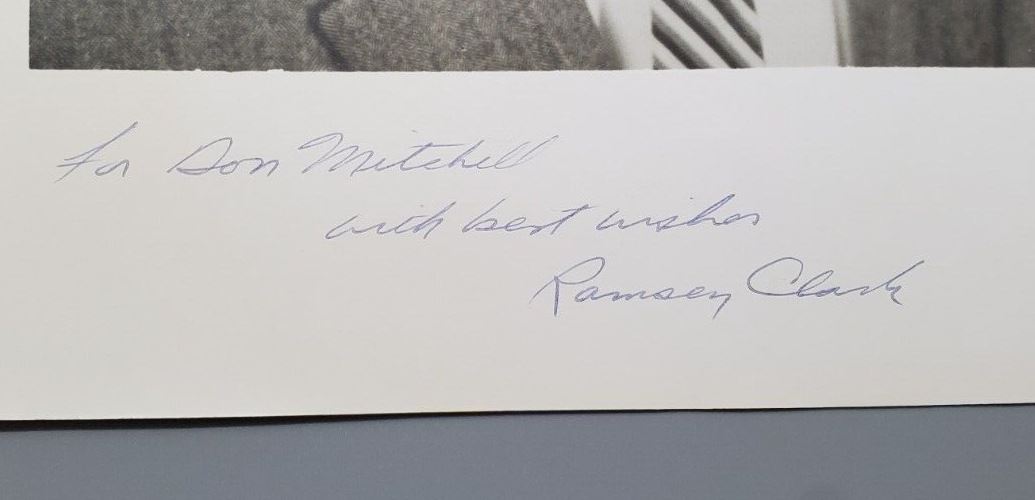 For Don Mitchell
with best wishes
Ramsey Clark